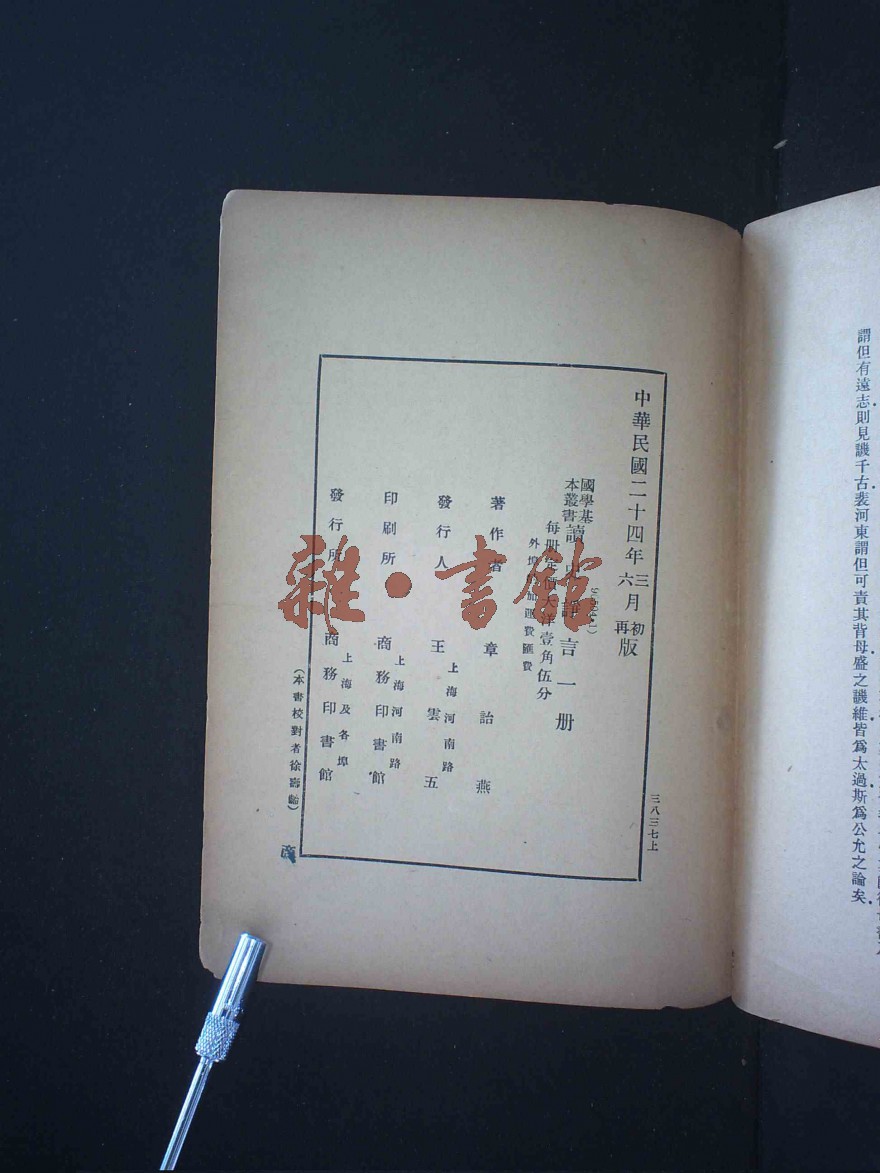 謂但有遠志則見譏千古裴河東謂但可責其背母盛之譏維皆為太過斯為公允之論矣
中華民國二十四年三月初版
六月再版
三八三七上
國學基本叢書
讀 諍言一册
每册定價大洋壹角伍分
外埠 加運費匯費
著作者 章詒燕
發行人 王雲五
上海河南路
印刷所 商務印書館
上海河南路
發行所 商務印書館
上海及各埠
(本書校對者徐壽齡)
雜·書館